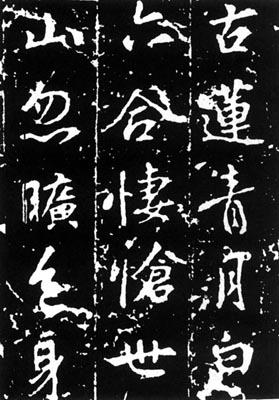 古蓮青月白
六合悽愴世
山忽曠身